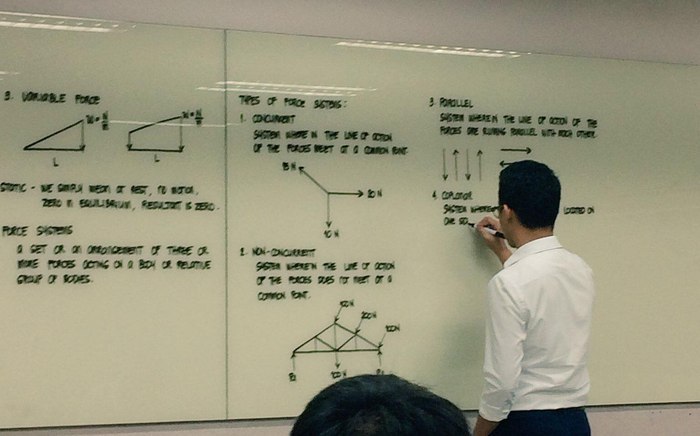 3. VARIABLE FORCE
W = N/m
W = N/m
L
L
STATIC - WE SIMPLY MEAN AT REST, NO MOTION,
ZERO IN EQUILIBRIUM, RESULTANT IS ZERO.
FORCE SYSTEMS
A SET OR AN ARRANGEMENT OF THREE OR
MORE FORCES ACTING ON A BODY OR RELATIVE
GROUP OF BODIES.
TYPES OF FORCE SYSTEMS:
1. CONCURRENT
SYSTEM WHERE IN THE LINE OF ACTION
OF THE FORCES MEET AT A COMMON POINT.
15 N
20 N
10 N
2. NON-CONCURRENT
SYSTEM WHEREIN THE LINE OF ACTION
OF THE FORCES DOES NOT MEET AT A
COMMON POINT.
100N
200N
100N
100N
3. PARALLEL
SYSTEM WHEREIN THE LINE OF ACTION OF THE
FORCES ARE RUNNING PARALLEL WITH EACH OTHER.
4. COPLANAR
SYSTEM WHERE LOCATED ON
ONE